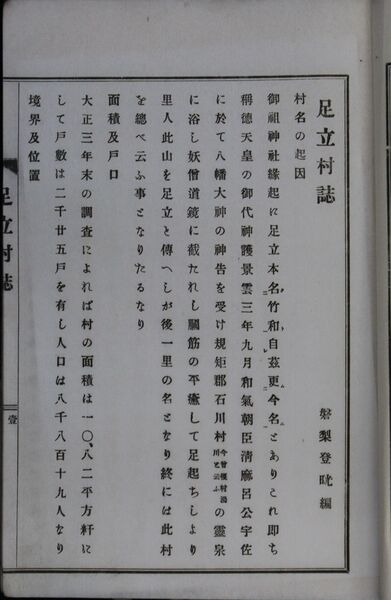 足立村誌
磐梨登晄編
村名の起因
御祖神社緣起に足立本名竹和自茲更今名とありこれ即ち
稱德天皇の御代神護景雲三年九月和氣朝臣清麻呂公宇佐
に於て八幡大神の神告を受け規矩郡石川村今曾根村湯川と云ふの靈泉
に浴し妖僧道鏡に截たれし膕筋の平癒して足起ちしより
里人此山を足立と傳へしが後一里の名となり終には此村
を總べ云ふ事となりたるなり
面積及戸口
大正三年末の調査によれば村の面積は一〇、八二平方粁に
して戸數は二千廿五戸を有し人口は八千八百十九人なり
境界及位置
足立村誌
壹